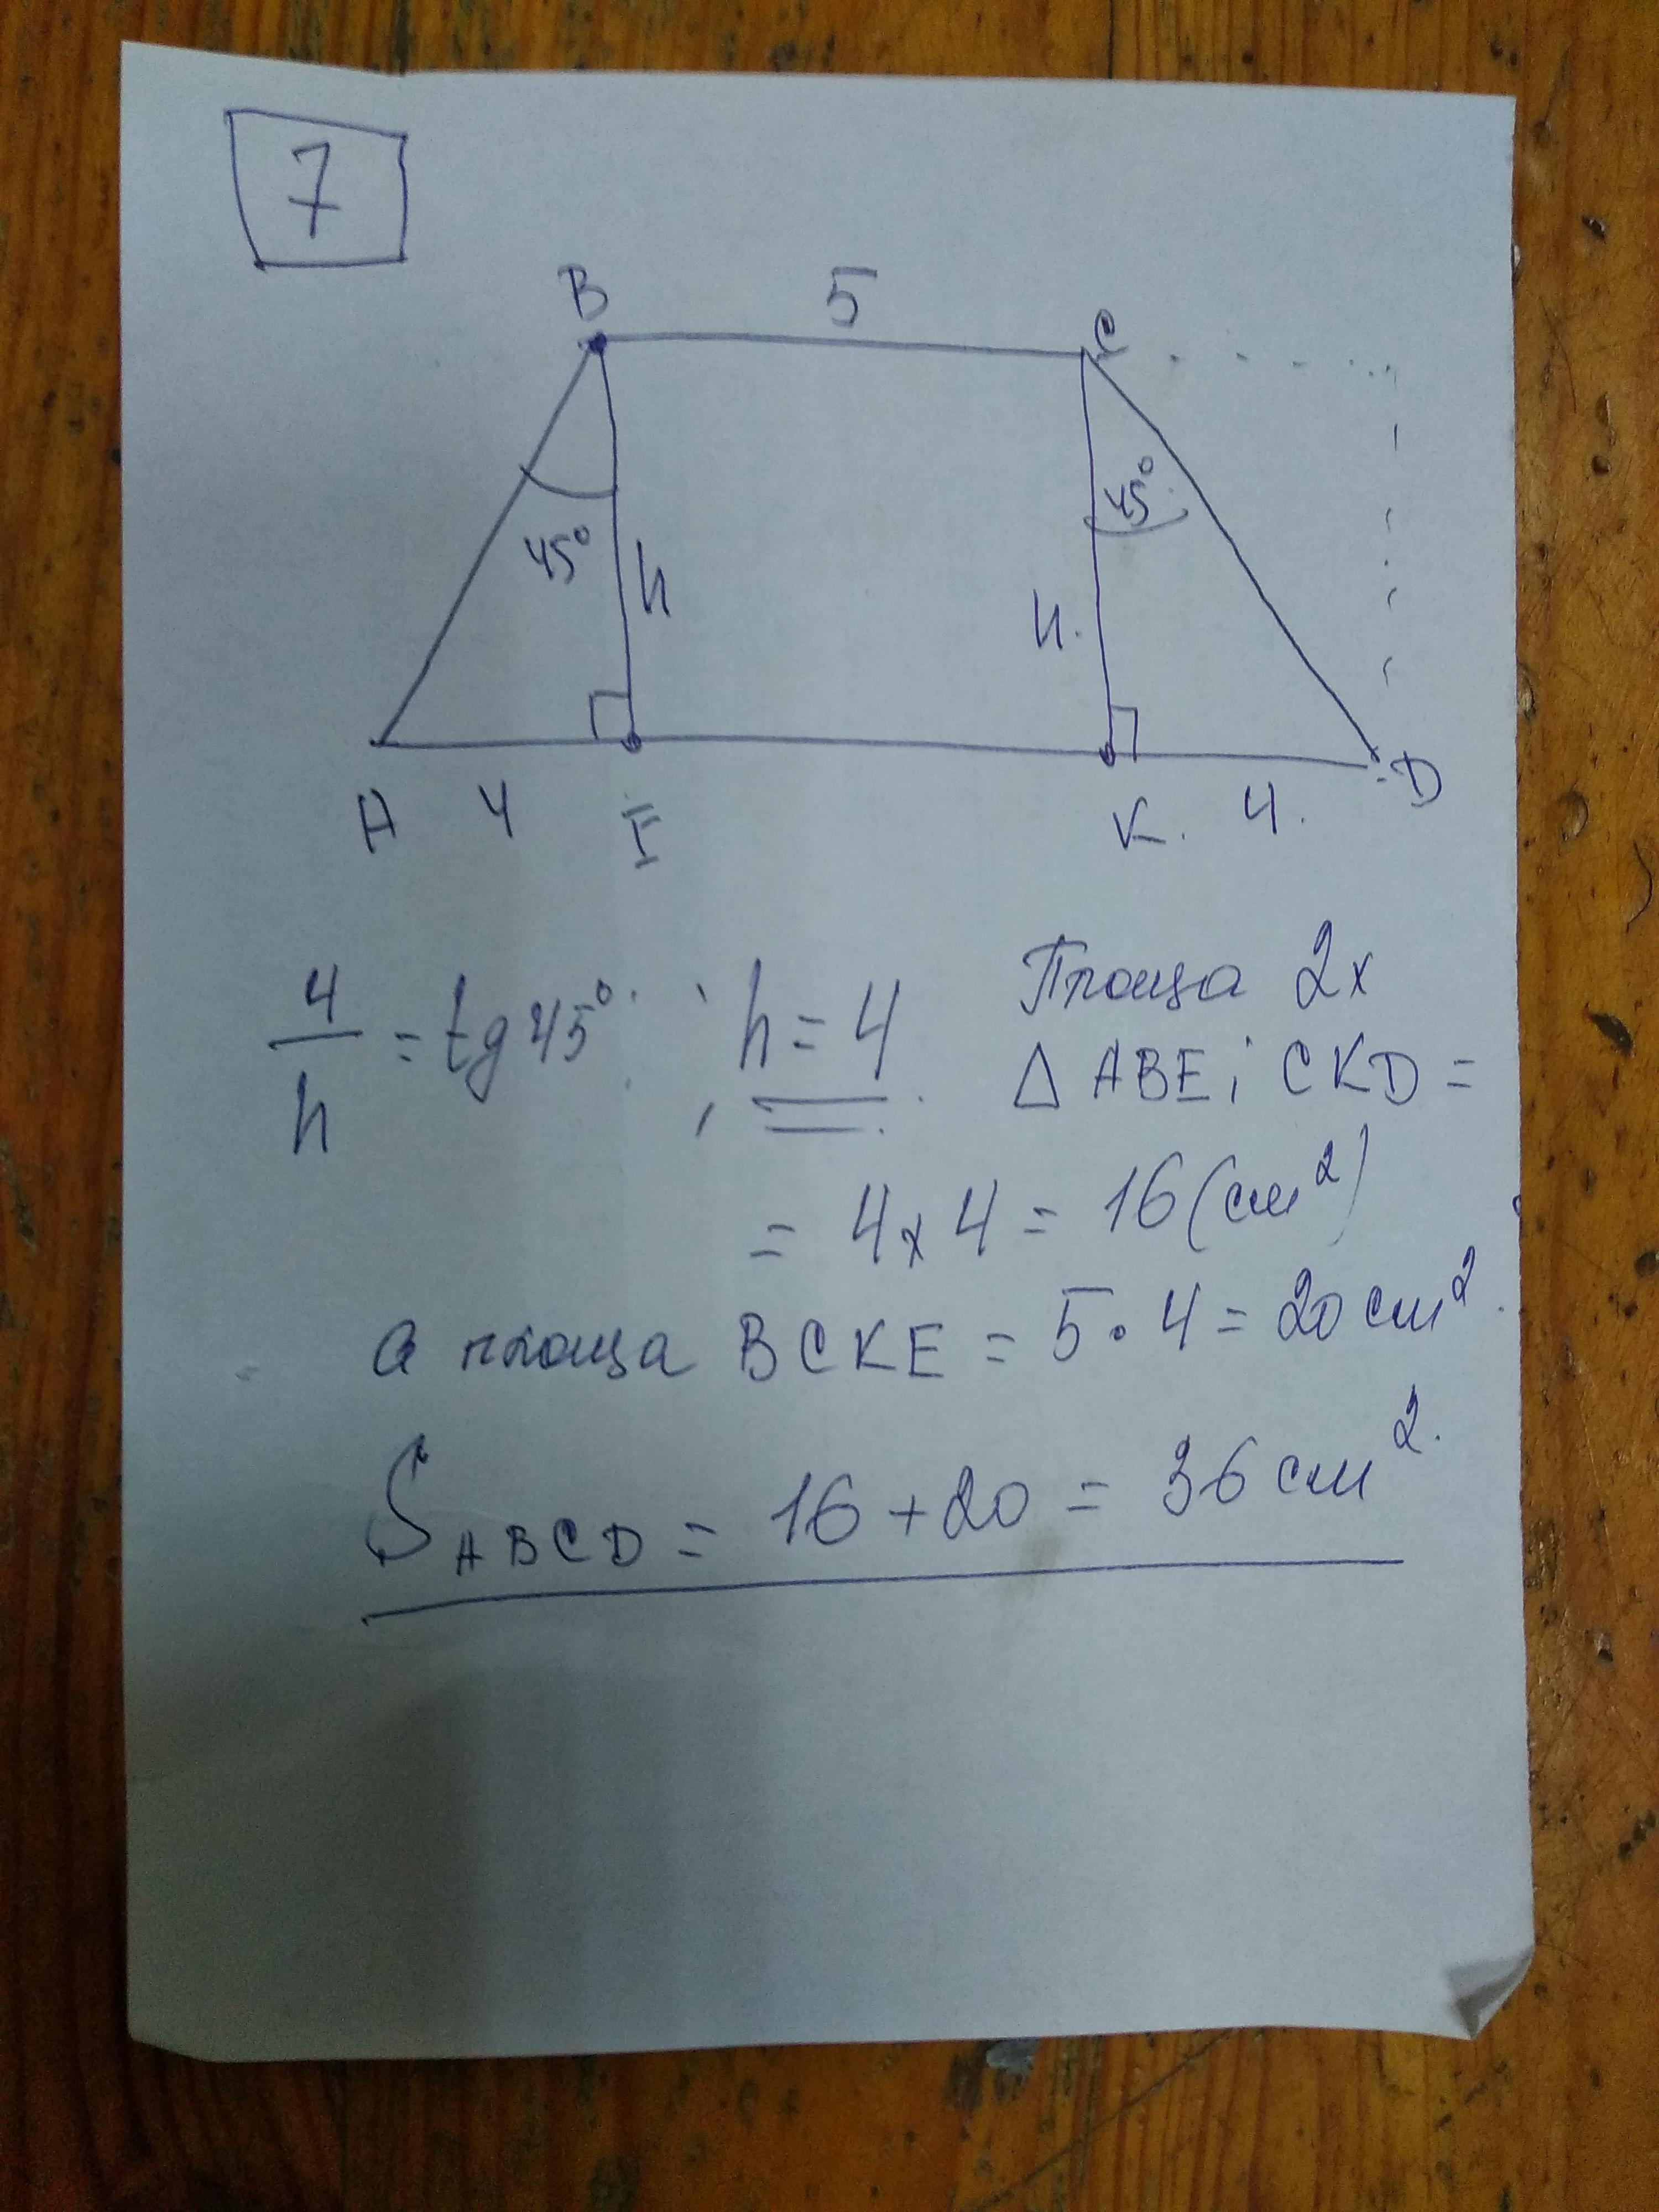 7
B 5 C
45° h h. 45°
A 4 E K. 4. D
4/h = tg 45° ; h = 4.
Площа 2х
Δ ABE і CKD =
= 4 x 4 = 16 (см²)
а площа BCKE = 5 · 4 = 20 см².
S ABCD = 16 + 20 = 36 см².